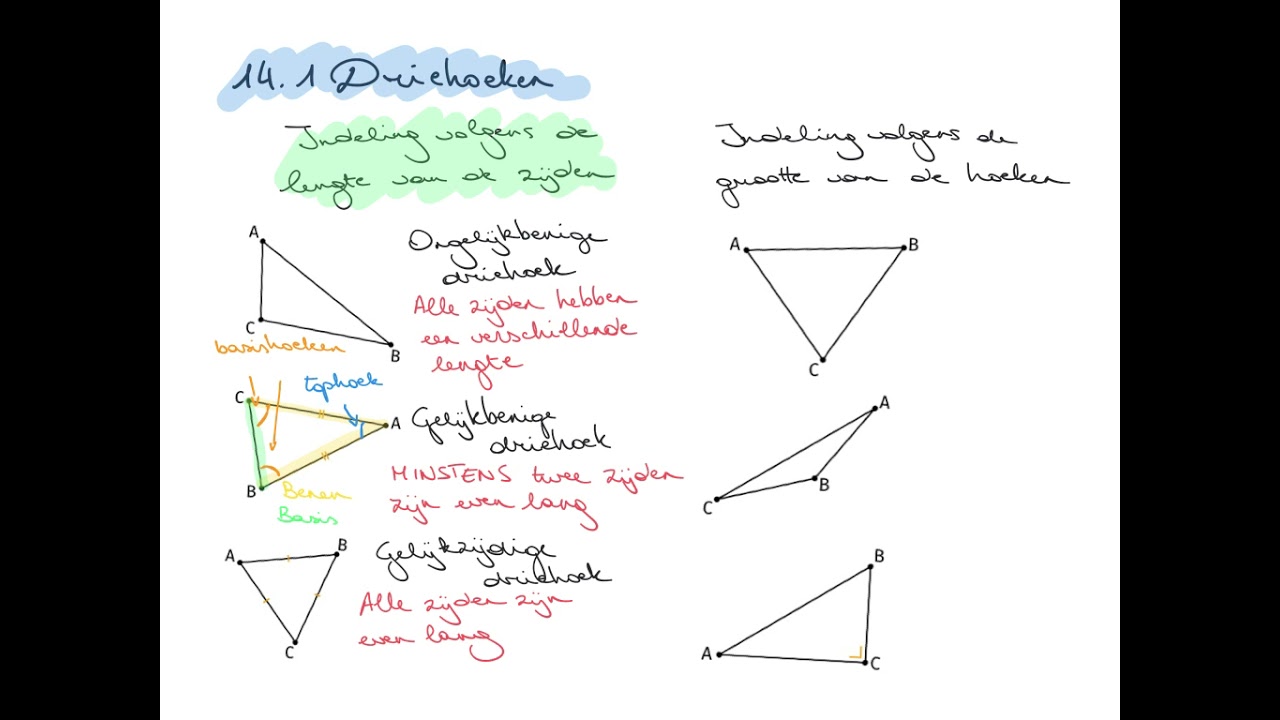 14.1 Driehoeken
Indeling volgens de
lengte van de zijden
A
C
B
Ongelijkbenige
driehoek
Alle zijden hebben
een verschillende
lengte
basishoeken
tophoek
C
A
B
Benen
Basis
Gelijkbenige
driehoek
MINSTENS twee zijden
zijn even lang
A
B
C
Gelijkzijdige
driehoek
Alle zijden zijn
even lang
Indeling volgens de
grootte van de hoeken
A
B
C
A
B
C
B
A
C